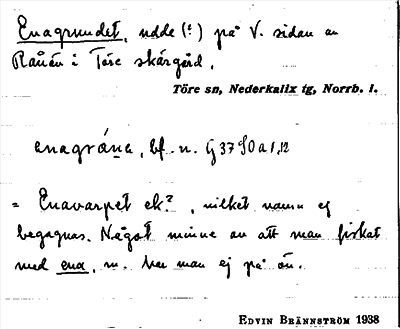 Enagrundet, udde (?) på V. sidan av
Rånön i Töre skärgård.
Töre sn, Nederkalix tg, Norrb. l.
enagrána, bf. n. G 37 SO a 1,12
= Enavarpet ek?, vilket namn ej
begagnas. Något minne av att man fiskat
med ena, m. har man ej på ön.
EDVIN BRÄNNSTRÖM 1938